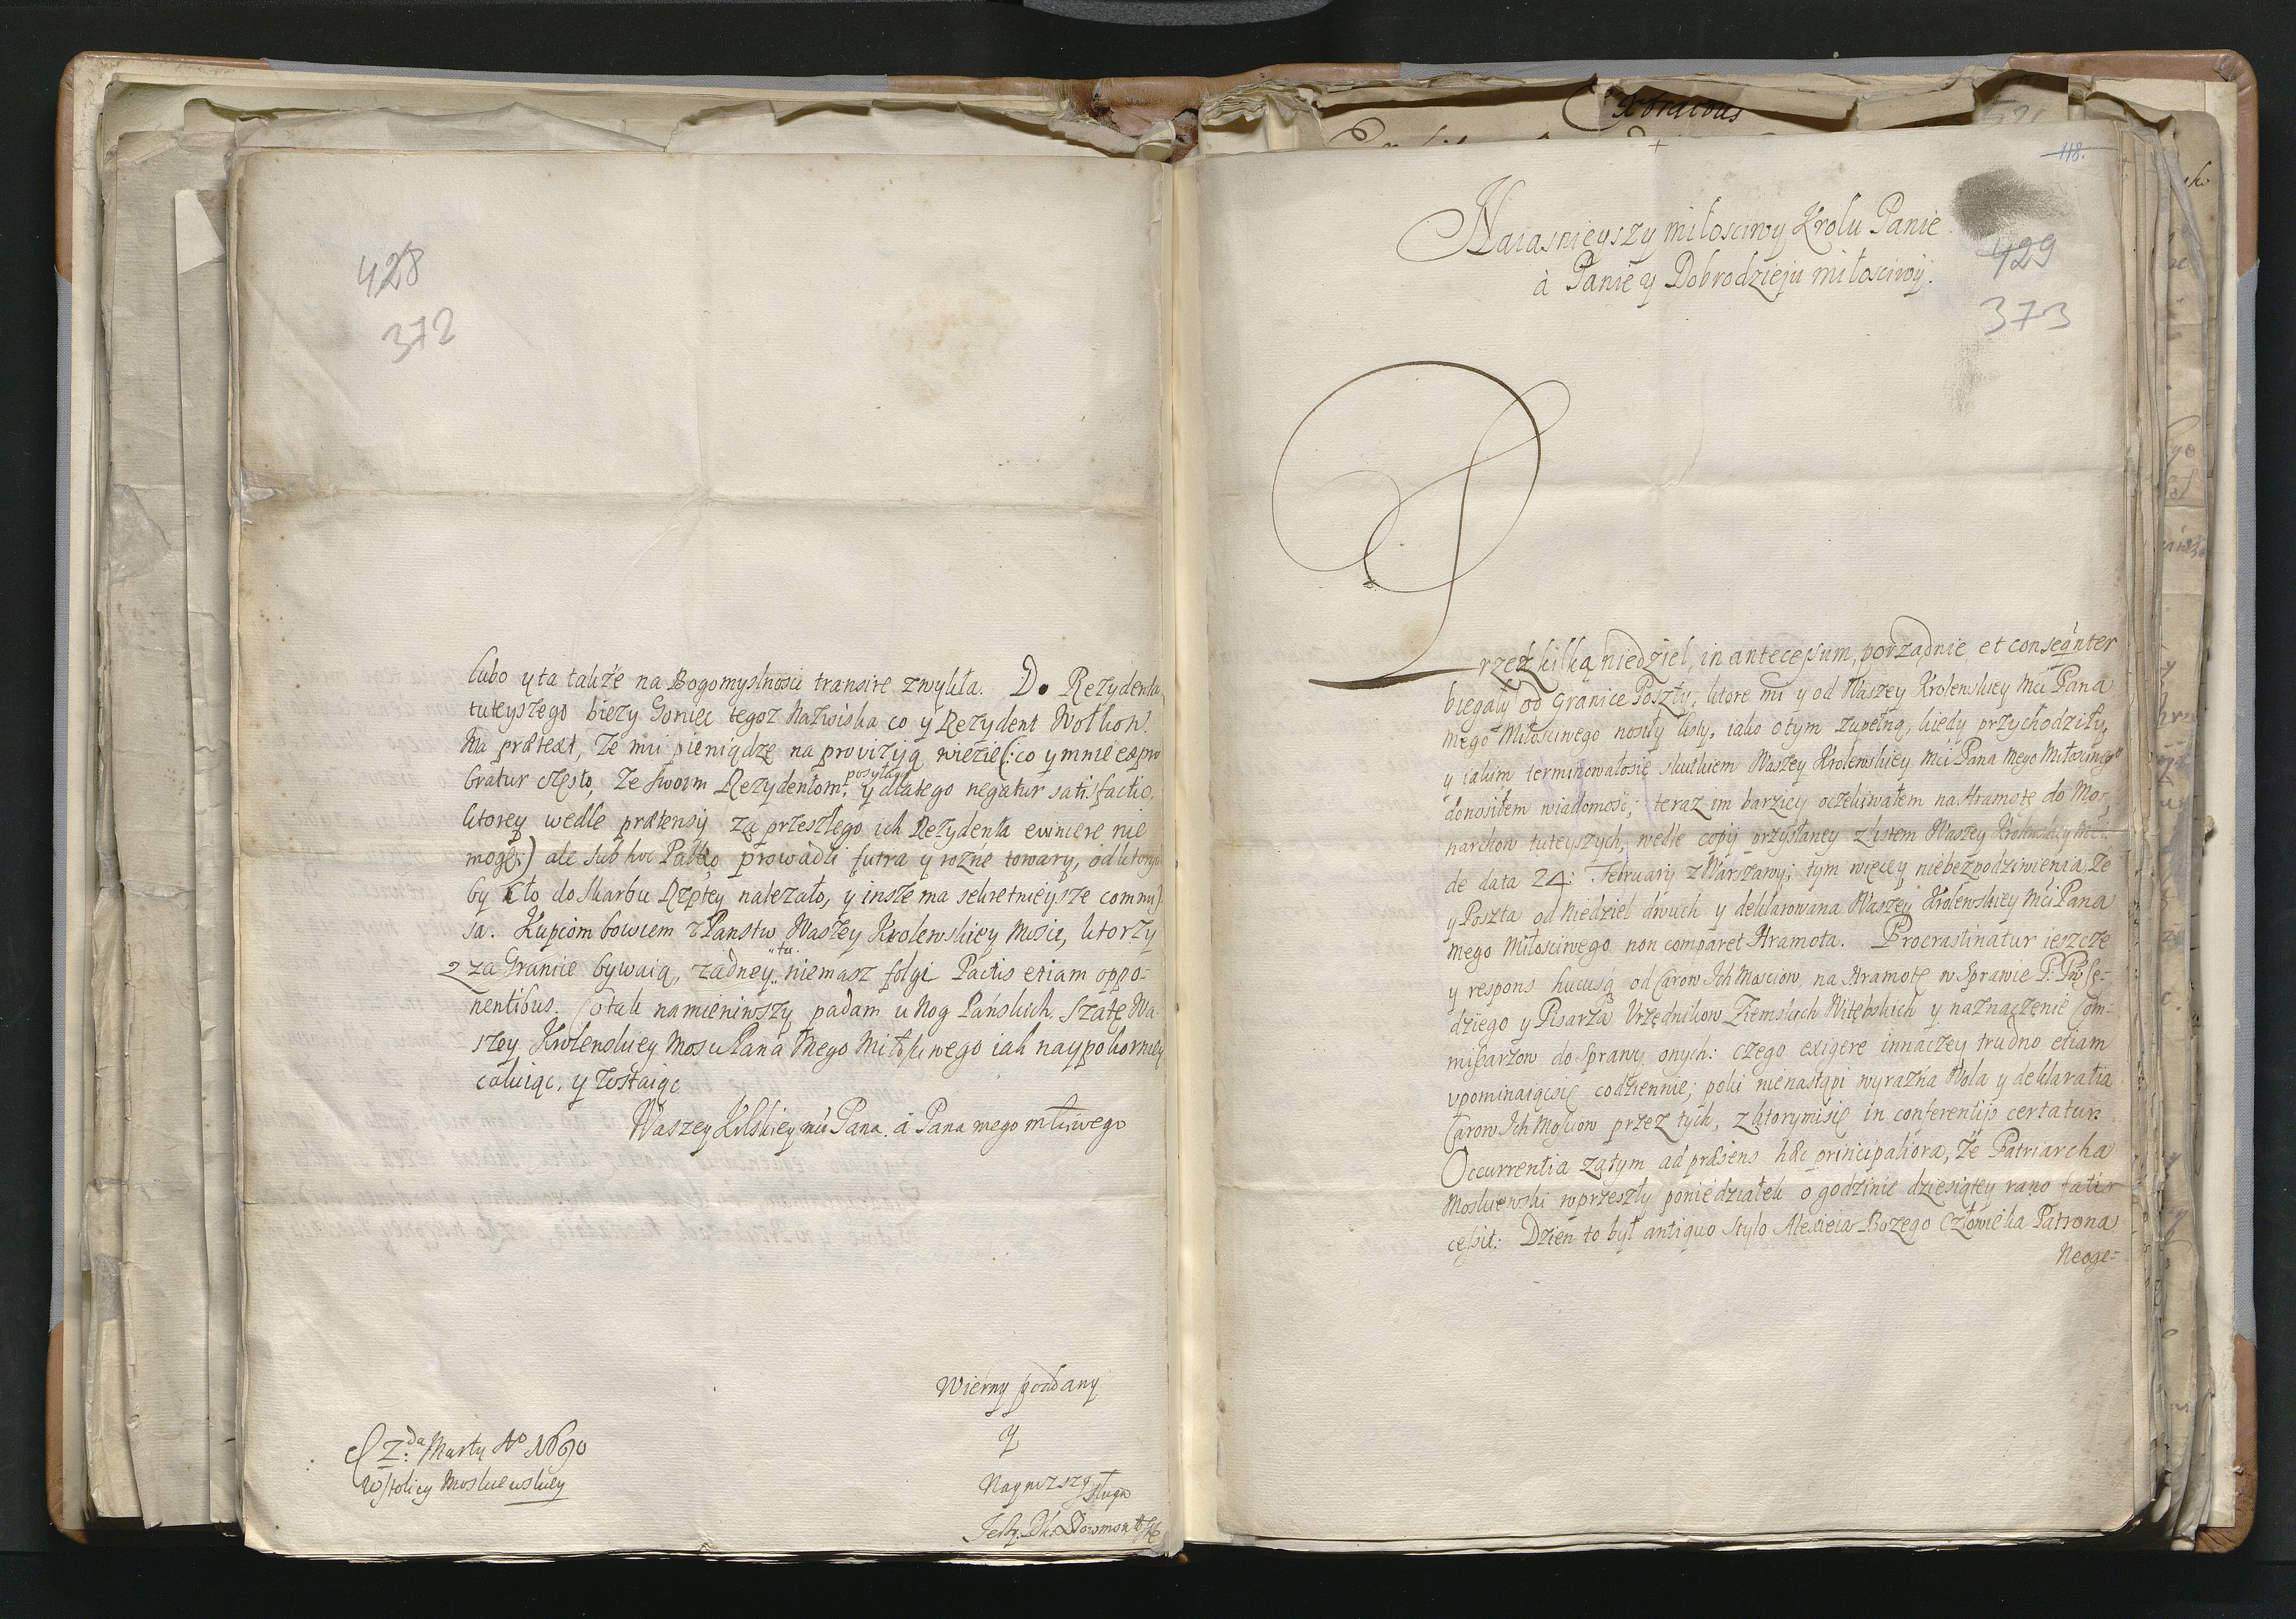 428
372
lubo y ta także na Bogomyslnosci transire zwykła. Do Rezydenta
tuteyszego bieży Goniec tegoż Nazwiska co y Rezydent Wołkow.
Na prætext, że mu pieniądze na prowizyją wiezie (: co y mnie expro
bratur często, że swoim Rezydentom posyłaią y dlatego negatur satisfactio,
ktorey wedle prætensij za przeszłego ich Rezydenta evincere nie
mogę:) ale sub hoc Pallio, prowadzi futra y rożne towary, od ktorych
by Cło do Skarbu Rzptey należało, y insze ma sekretnieysze commis
sa. Kupcom bowiem z Panstw Waszey Krolewskiey Mości, ktorzy
2 za Granice bywaią, żadney tu niemasz folgi Pactis etiam oppo-
nentibus. Co tak namieniwszy padam u Nog Pańskich. Szatę Wa-
szey Krolewskiey Mosci Pana Mego Miłosciwego iak naypokorniey
całuiąc, y zostaiąc
Waszey Krlskiey mci Pana. á Pana mego młciwego
Wierny poddany
y
Naynizszy sługa
2da Marty Ao 1690
w Stolicy Moskiewskiey
Jerzy Dowmont
118.
Naiasnieyszy miłosciwy Krolu Panie
à Panie y Dobrodzieju miłosciwy.
429
373
Przez kilka niedziel, in antecessum, porządnie et conseqnter
biegały od Granice Poszty, ktore mi y od Waszey Krolewskiey Mci Pana
mego Miłosciwego nosiły listy, iako o tym zupełną, kiedy przychodziły,
y iakim terminowałosię skutkiem Waszey Krolewskiey Mci Pana Mego Miłosciwego
donosiłem wiadomość; teraz im barziey oczekiwałem na Hramotę do Mo-
narchow tuteyszych, wedle copij przysłaney z listem Waszey Krolewskiey Mości
de data 24: February z Warszawy; tym więcey niebezpodziwienia, że
y Poszta od Niedziel dwuch y deklarowana Waszey Krolewskiey Mci Pana
mego Miłosciwego non comparet Hramota. Procrastinatur ieszcze
y respons hucusq od Carow Ich Mosciow, na Hramotę w Sprawie P. Pdsę-
dziego y Pisarza Urzędnikow Ziemskich Witebskich y naznaczenie Com-
missarzow do Sprawy onych: czego exigere innaczey trudno etiam
upominaiącsię codziennie; poki nienastąpi wyraźna Wola y deklaratia
Carow Ich Mosciow przez tych, z ktorymisię in conferentijs certatur.
Occurrentia zatym ad præsens hæc principaliora, że Patriarcha
Moskiewski w przeszły poniedziałek o godzinie dziesiątey rano fatis
cessit: Dzień to był antiquo Stylo Alexieia Bozego Człowieka Patrona
Neoge-